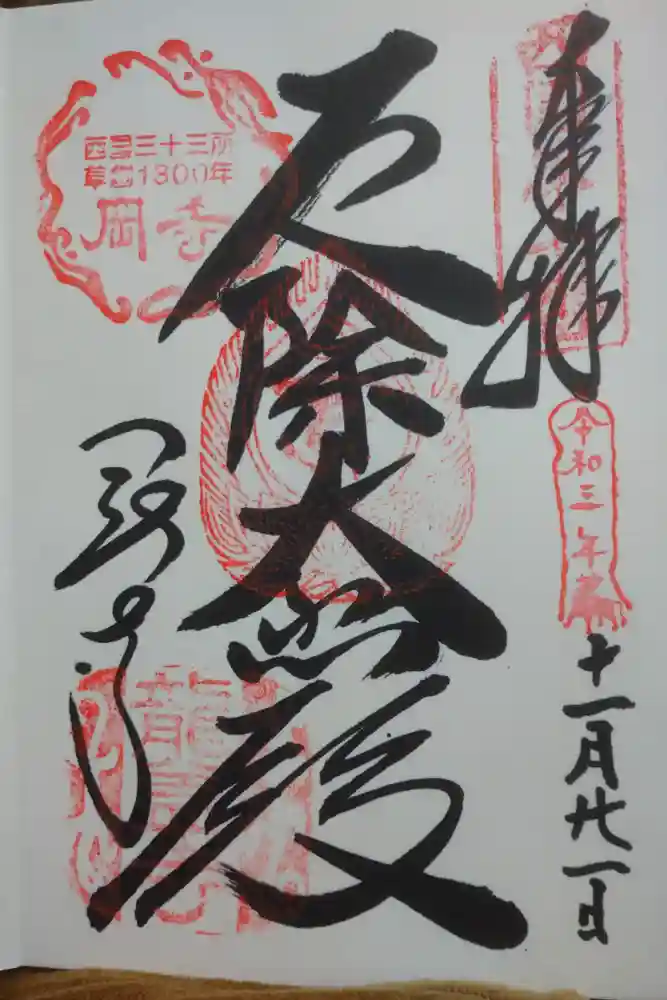 奉拝
令和三年
十一月廿一日
厄除大悲殿
西国三十三所
草創1300年
岡寺